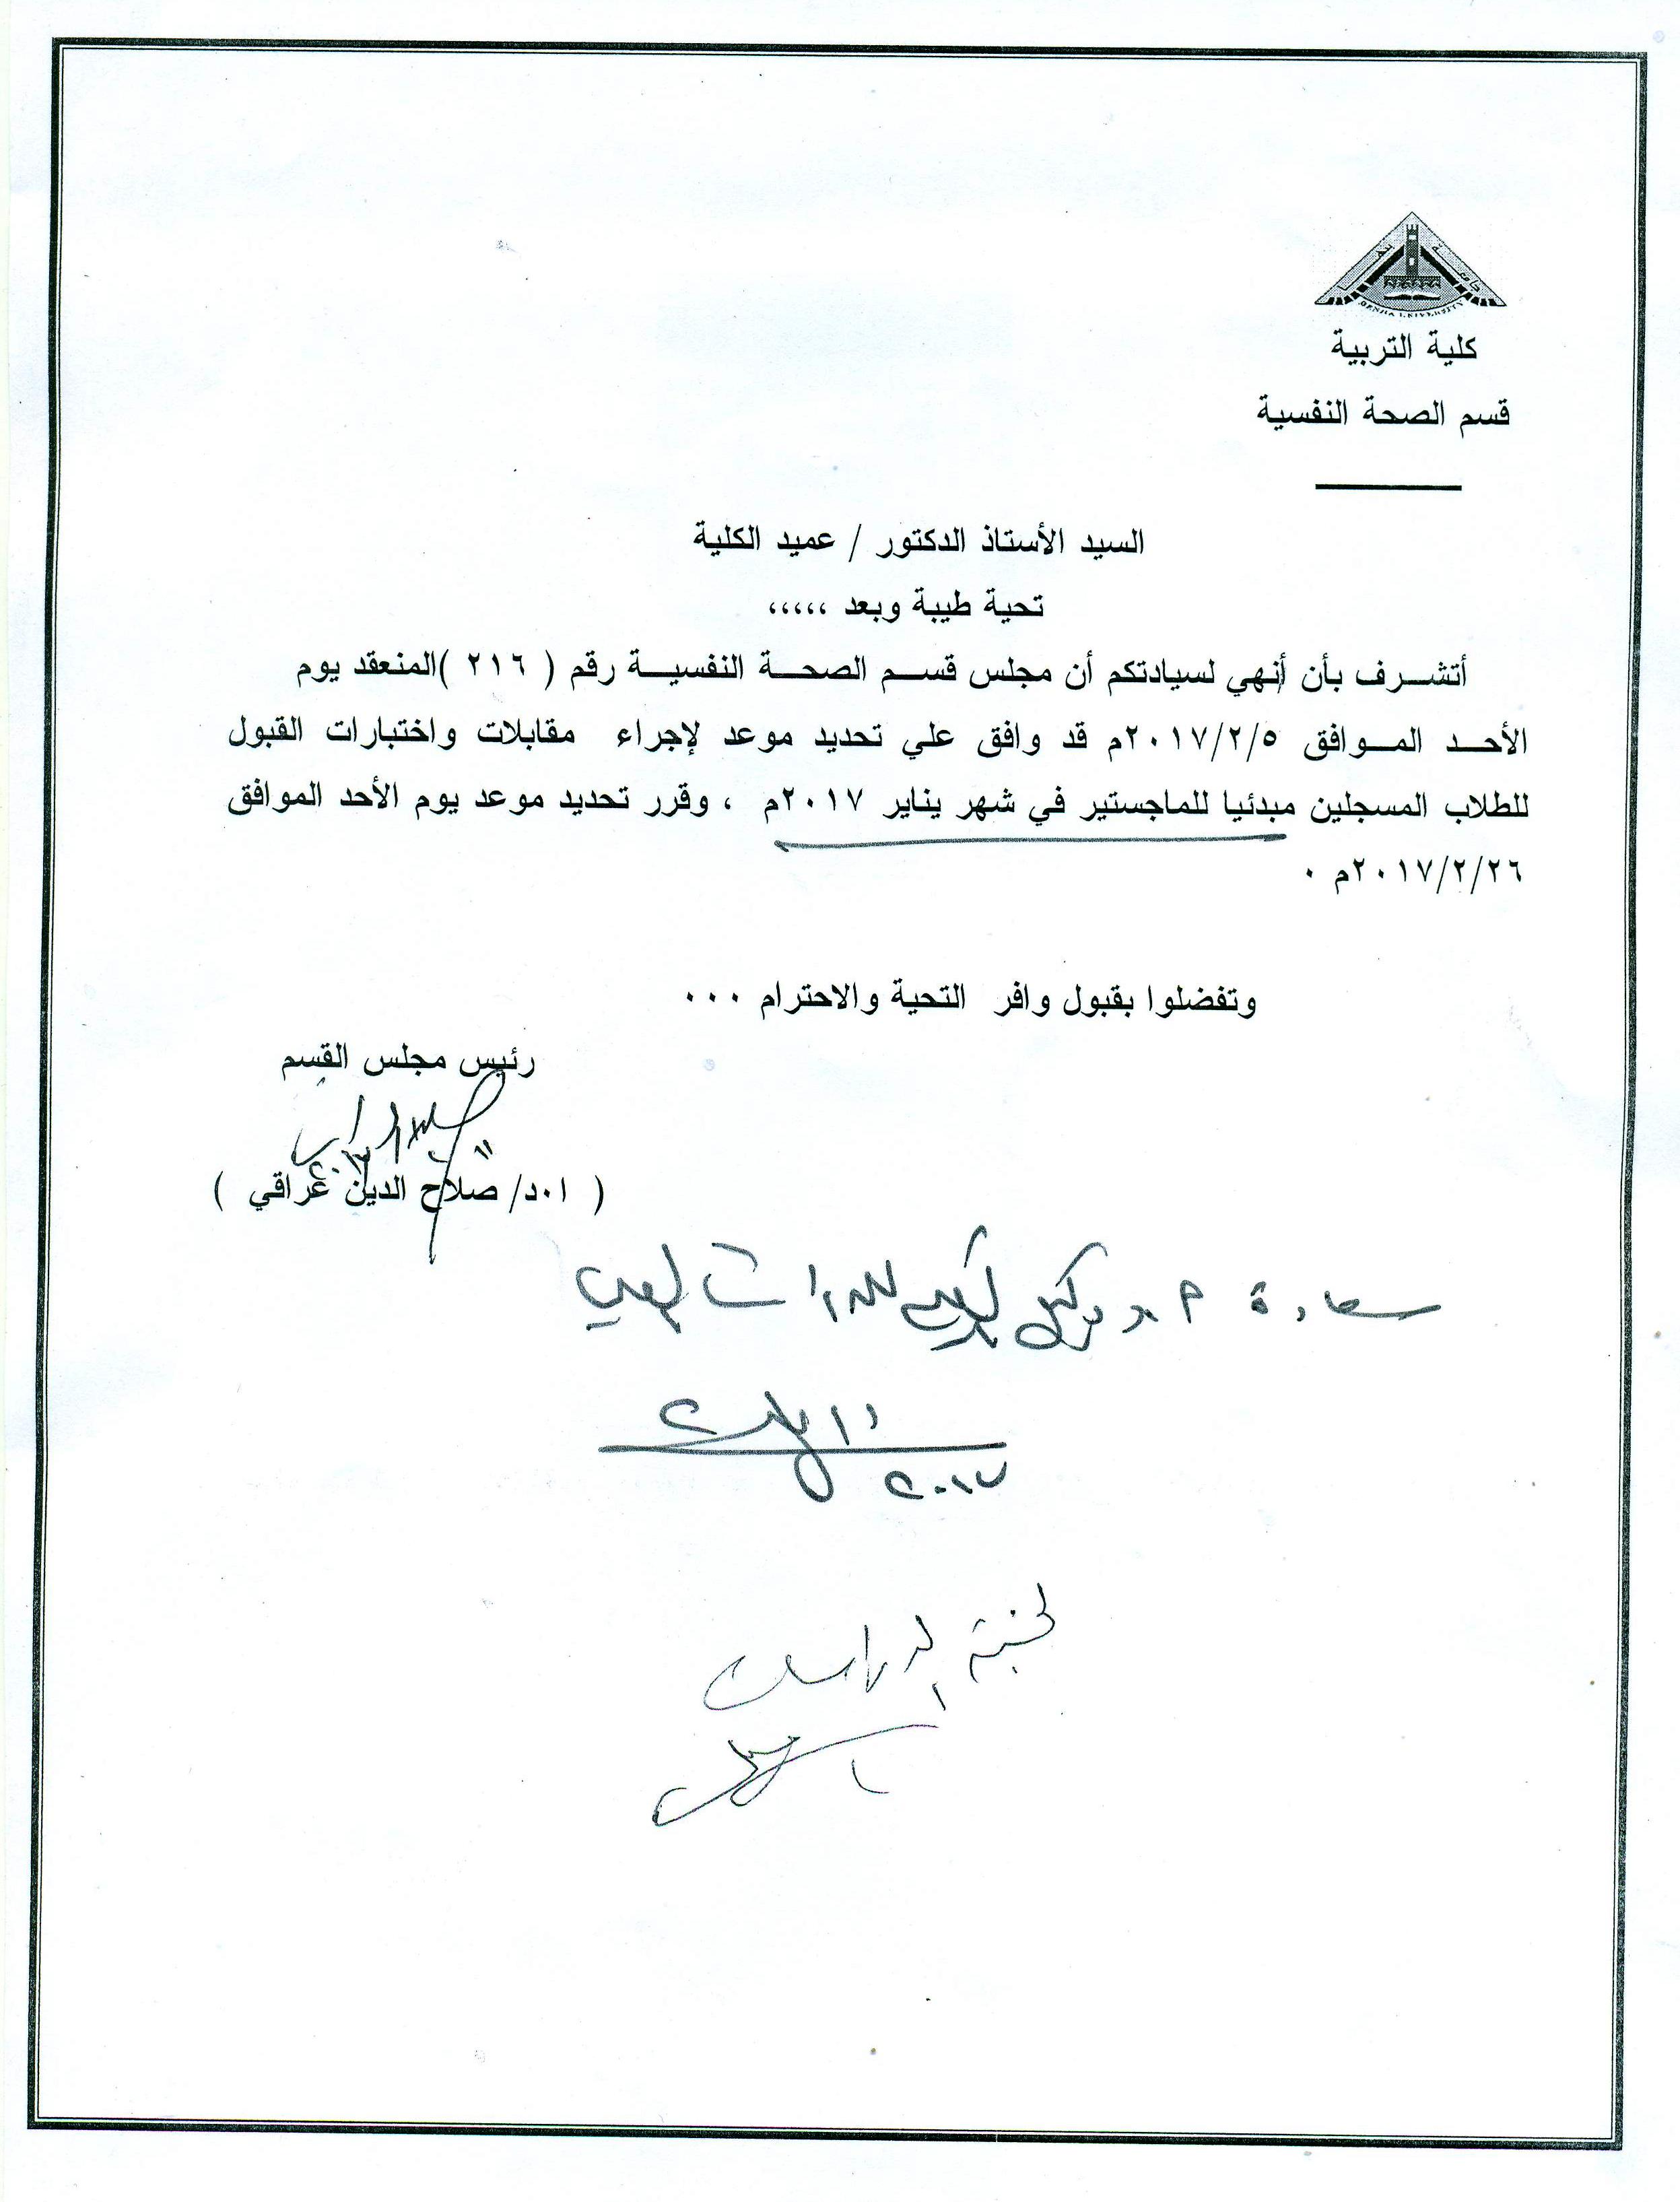 جامعة بنها
BENHA UNIVERSITY
كلية التربية
قسم الصحة النفسية
السيد الأستاذ الدكتور / عميد الكلية
تحية طيبة وبعد ،،،،،
أتشرف بأن أنهي لسيادتكم أن مجلس قسم الصحة النفسية رقم ( ٢١٦ )المنعقد يوم
الأحد الموافق ٢٠١٧/٢/٥م قد وافق علي تحديد موعد لإجراء مقابلات واختبارات القبول
للطلاب المسجلين مبدئيا للماجستير في شهر يناير ٢٠١٧م ، وقرر تحديد موعد يوم الأحد الموافق
٢٠١٧/٢/٢٦م ٠
وتفضلوا بقبول وافر التحية والاحترام ٠٠٠
رئيس مجلس القسم
( ا٠د/ صلاح الدين عراقي )
سعادة ا.د وكيل الكلية للدراسات العليا
٢٠١٧
لجنة الدراسات